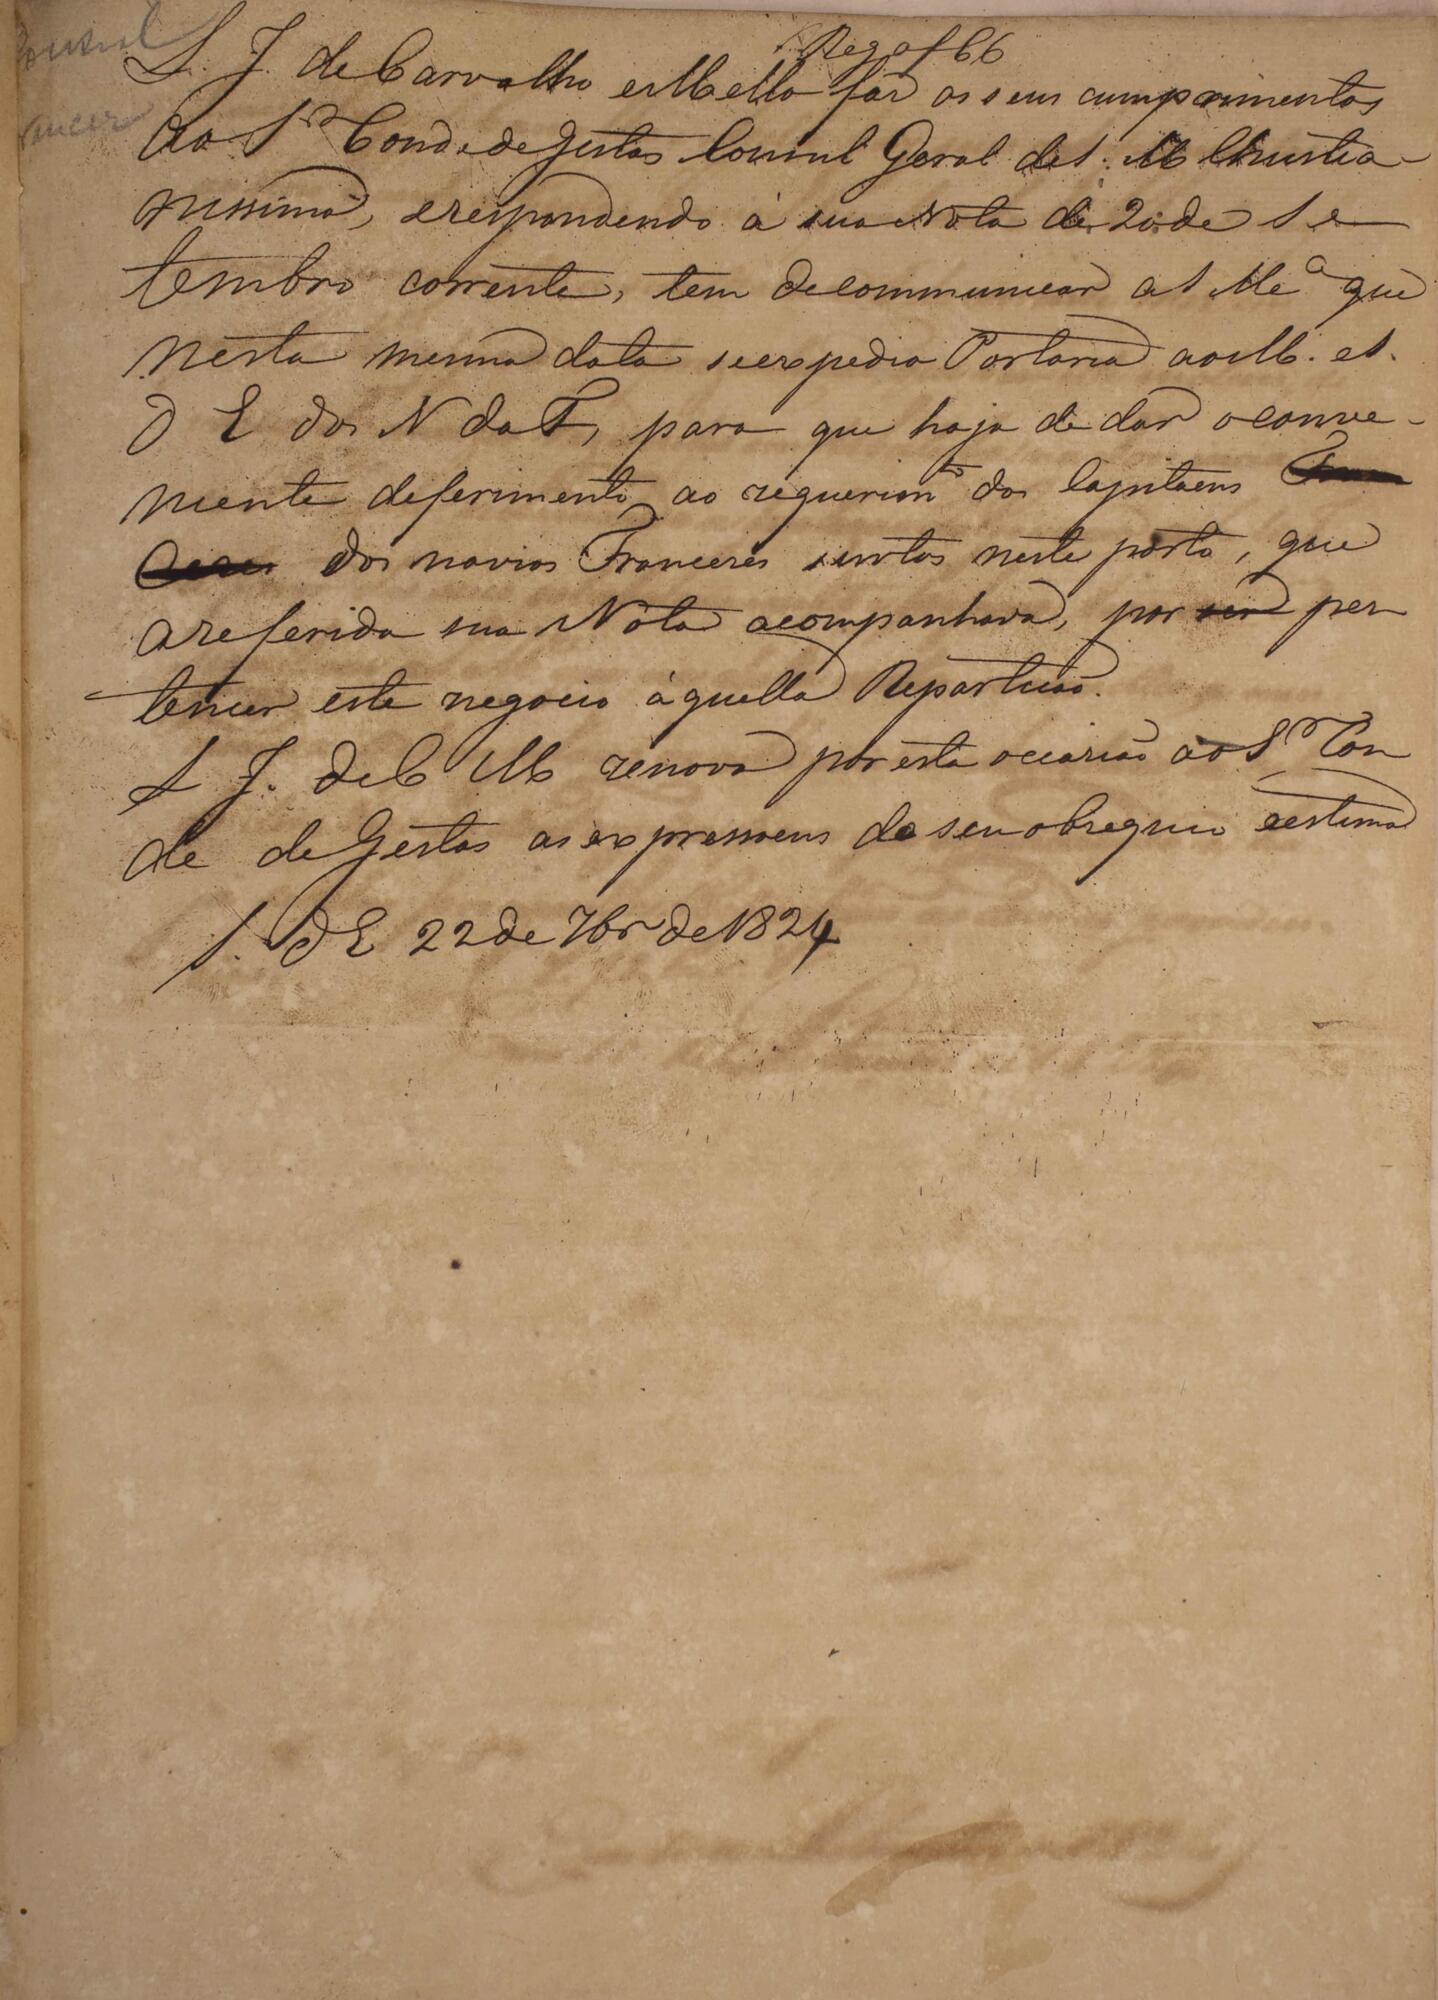 Consul
Francez
Reg a f 66
L. J. de Carvalho e Mello faz os seus cumprimentos
ao Sr Conde de Gestas Consul Geral de S. M. Christia-
nissima, e respondendo á sua Nota de 20 de Se
tembro corrente, tem de communicar a S Mce que
nesta mesma data se expedio Portaria ao M. e S.
d E dos N da F, para que haja de dar o conve-
niente deferimento ao requerimto dos Capitaens
dos navios Francezes surtos neste porto, que
a referida sua Nota acompanhava, por ser per
tencer este negocio áquella Repartição.
L J. de C M renova por esta occasião ao Sr Con
de de Gestas as expressoens de seu obsequio e estima
S. d E 22 de 7br de 1824